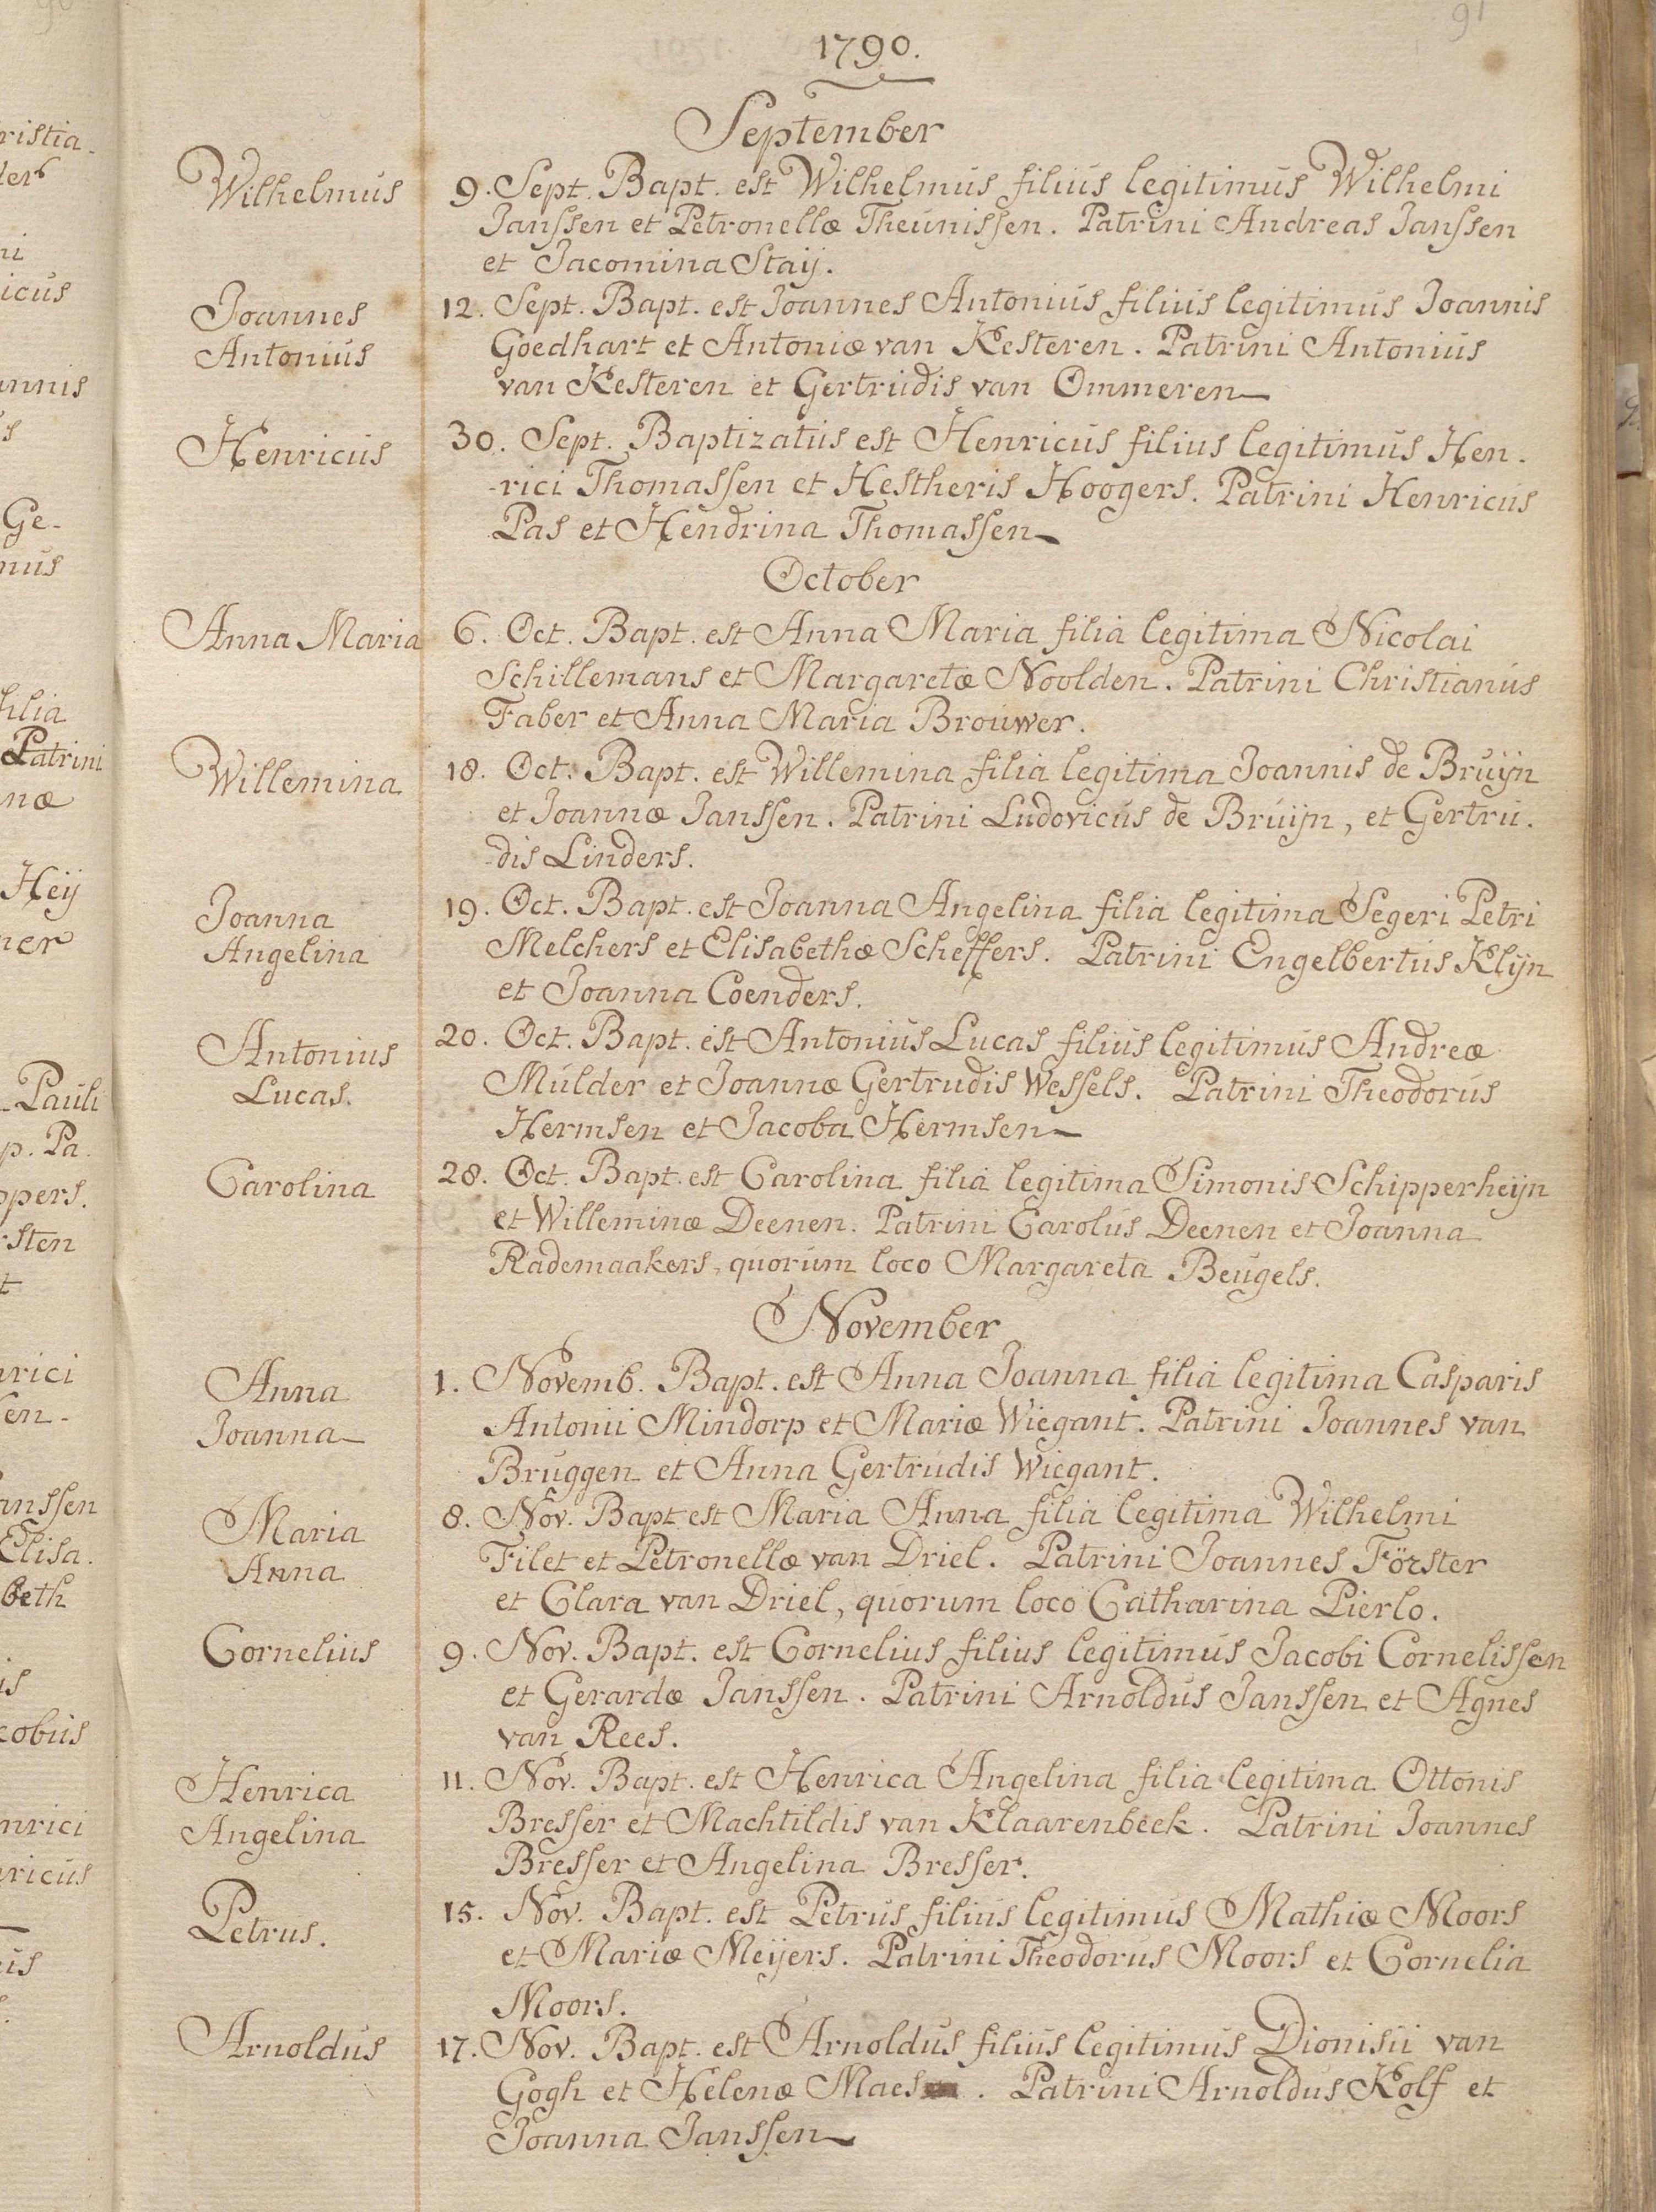 91
1790.
September
Wilhelmus
9. Sept. Bapt. est Wilhelmus filius legitimus Wilhelmi
Janssen et Petronellæ Theunissen. Patrini Andreas Janssen
et Jacomina Staij.
Joannes
Antonius
12. Sept. Bapt. est Joannes Antonius filius legitimus Joannis
Goedhart et Antoniæ van Kesteren. Patrini Antonius
van Kesteren et Gertrudis van Ommeren
Henricus
30. Sept. Baptizatus est Henricus filius legitimus Hen-
-rici Thomassen et Hestheris Hoogers. Patrini Henricus
Pas et Hendrina Thomassen
October
Anna Maria
6. Oct. Bapt. est Anna Maria filia legitima Nicolai
Schillemans et Margaretæ Noolden. Patrini Christianus
Faber et Anna Maria Brouwer.
Willemina
18. Oct. Bapt. est Willemina filia legitima Joannis de Bruijn
et Joannæ Janssen. Patrini Ludovicus de Bruijn, et Gertru-
-dis Linders.
Joanna
Angelina
19. Oct. Bapt. est Joanna Angelina filia legitima Segeri Petri
Melchers et Elisabethæ Scheffers. Patrini Engelbertus Klijn
et Joanna Coenders.
Antonius
Lucas.
20. Oct. Bapt. est Antonius Lucas filius legitimus Andreæ
Mulder et Joannæ Gertrudis Wessels. Patrini Theodorus
Hermsen et Jacoba Hermsen
Carolina
28. Oct. Bapt. est Carolina filia legitima Simonis Schipperheijn
et Willeminæ Deenen. Patrini Carolus Deenen et Joanna
Rademaakers, quorum loco Margareta Beugels.
November
Anna
Joanna
1. Novemb. Bapt. est Anna Joanna filia legitima Casparis
Antonii Mindorp et Mariæ Wiegant. Patrini Joannes van
Bruggen et Anna Gertrudis Wiegant.
Maria
Anna
8. Nov. Bapt est Maria Anna filia legitima Wilhelmi
Filet et Petronellæ van Driel. Patrini Joannes Förster
et Clara van Driel, quorum loco Catharina Pierlo.
Cornelius
9. Nov. Bapt. est Cornelius filius legitimus Jacobi Cornelissen
et Gerardæ Janssen. Patrini Arnoldus Janssen et Agnes
van Rees.
Henrica
Angelina
11. Nov. Bapt. est Henrica Angelina filia legitima Ottonis
Bresser et Machtildis van Klaarenbeek. Patrini Joannes
Bresser et Angelina Bresser.
Petrus.
15. Nov. Bapt. est Petrus filius legitimus Mathiæ Moors
et Mariæ Meijers. Patrini Theodorus Moors et Cornelia
Moors.
Arnoldus
17. Nov. Bapt. est Arnoldus filius legitimus Dionisii van
Gogh et Helenæ Maes. Patrini Arnoldus Kolf et
Joanna Janssen